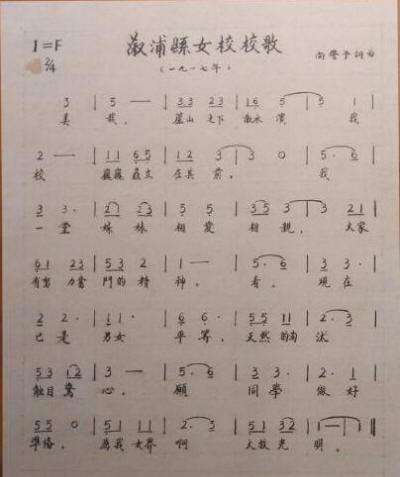 1=F 溆浦縣女校校歌
2/4 (一九一七年) 向警予詞曲
3 | 5 — | 33 23 | 16 5 | 5 1 |
美 哉, 山之下 溆水 濱 我
2 — | 11 65 | 12 3 | 3 0 | 5·6 |
校 巍巍矗立 在其 前。 我
3 3· | 2 23 | 5 5 | 35 3 | 3 21 |
一 堂 姊 妹 相 愛 相 親, 大家
61 23 | 53 2 | 1 — | 5·6 | 3 3· |
有努 力奮 鬥的 精 神。 看, 現 在
2 2· | 1 1· | 6 6· | 55 11 | 2·3 |
已 是 男 女 平 等, 天然 的淘 汰
53 12 | 3 — | 5·6 | 3 3· | 2·1 |
觸目 驚 心。 願 同 學 做 好
55 0 | 51 11 | 2 2 | 51 32 | 1· |
準備, 為我 女界 啊 大放光 明。